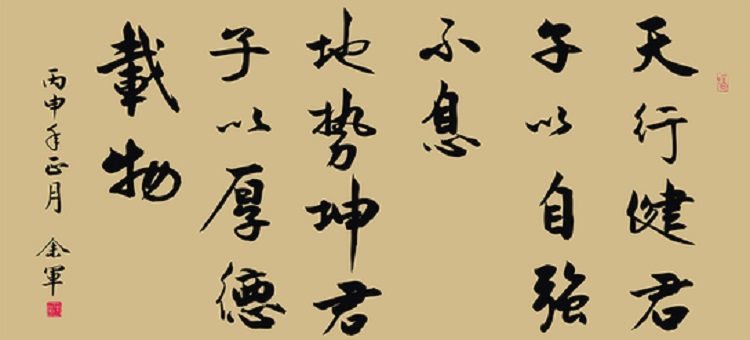 天行健君
子以自強
不息
地势坤君
子以厚德
載物
丙申年正月 金軍